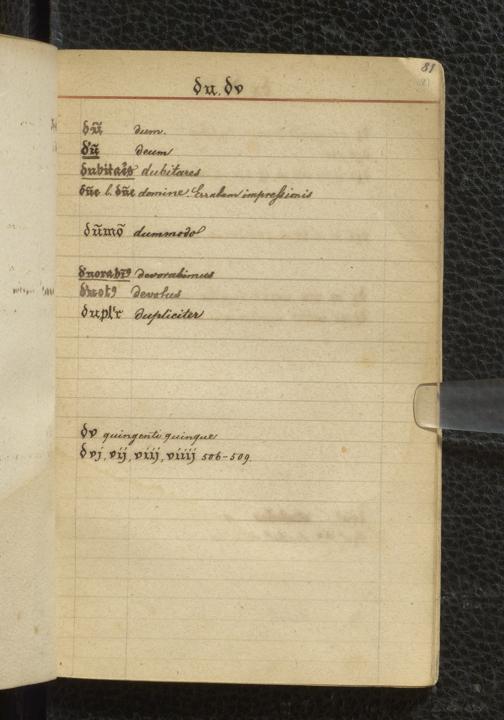 81
du. dv
dū dum.
dū deum
dubitaēs dubitares
dūe l. dūe domine. Erratum impressionis
dūmō dummodo
duorabī⁹ devorabimus
duot⁹ devotus
dupl'r dupliciter
dv quingenti quinque
dvj, vij, viij, viiij 506-509.